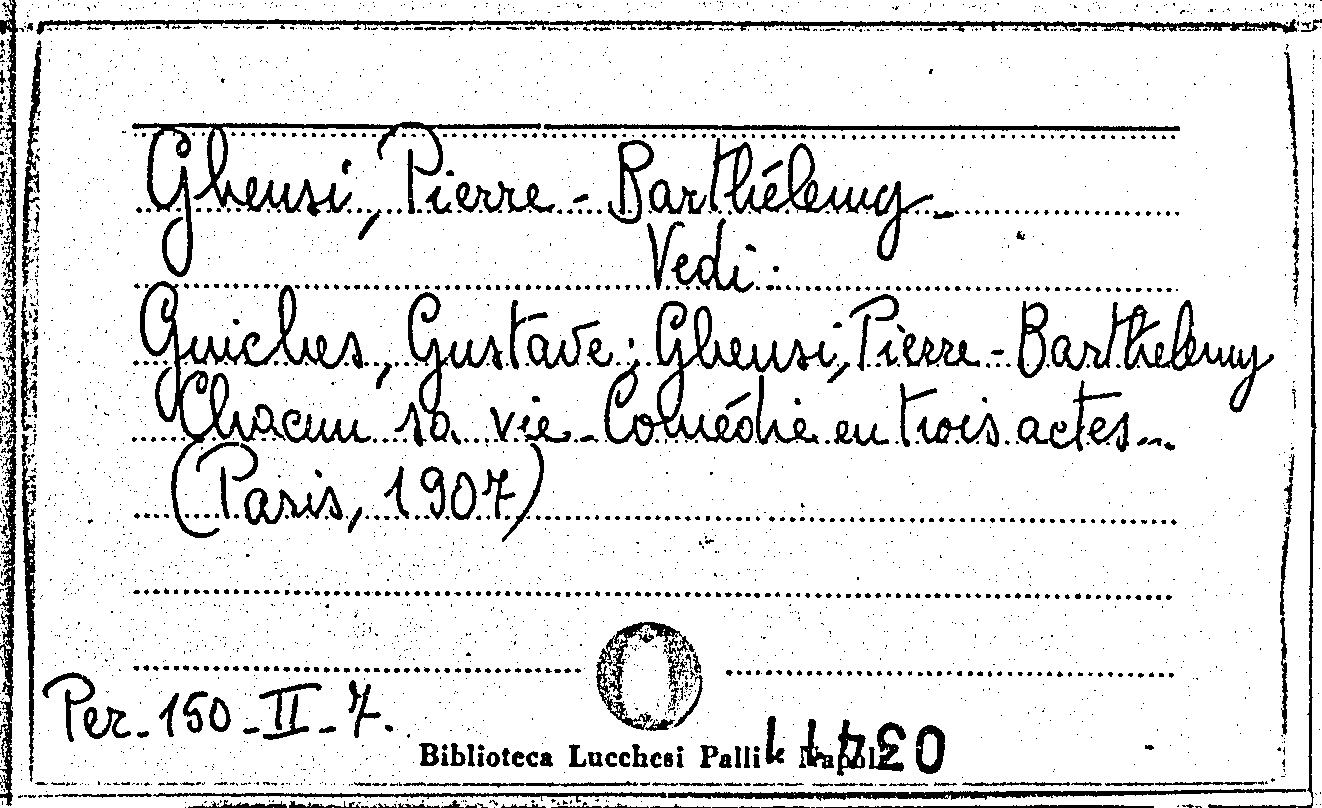 Gheusi, Pierre-Barthélemy-
Vedi:
Guiches, Gustave; Gheusi, Pierre-Barthelemy
Chacun sa vie. Comédie en trois actes...
(Paris, 1907)
Per-150-II-7.
Biblioteca Lucchesi Palli